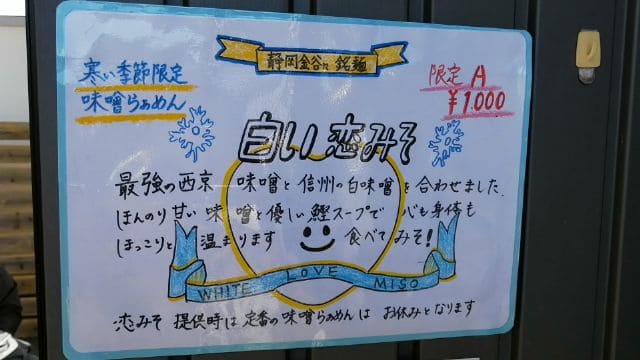 静岡金谷 銘麺
寒い季節限定
味噌らぁめん
限定 A
¥1,000
白い恋みそ
最強の西京 味噌と信州の白味噌を合わせました
ほんのり甘い 味噌と優しい鰹スープで 心も身体も
ほっこりと 温まります 食べてみそ!
WHITE LOVE MISO
恋みそ 提供時は 定番の味噌らぁめんは お休みとなります